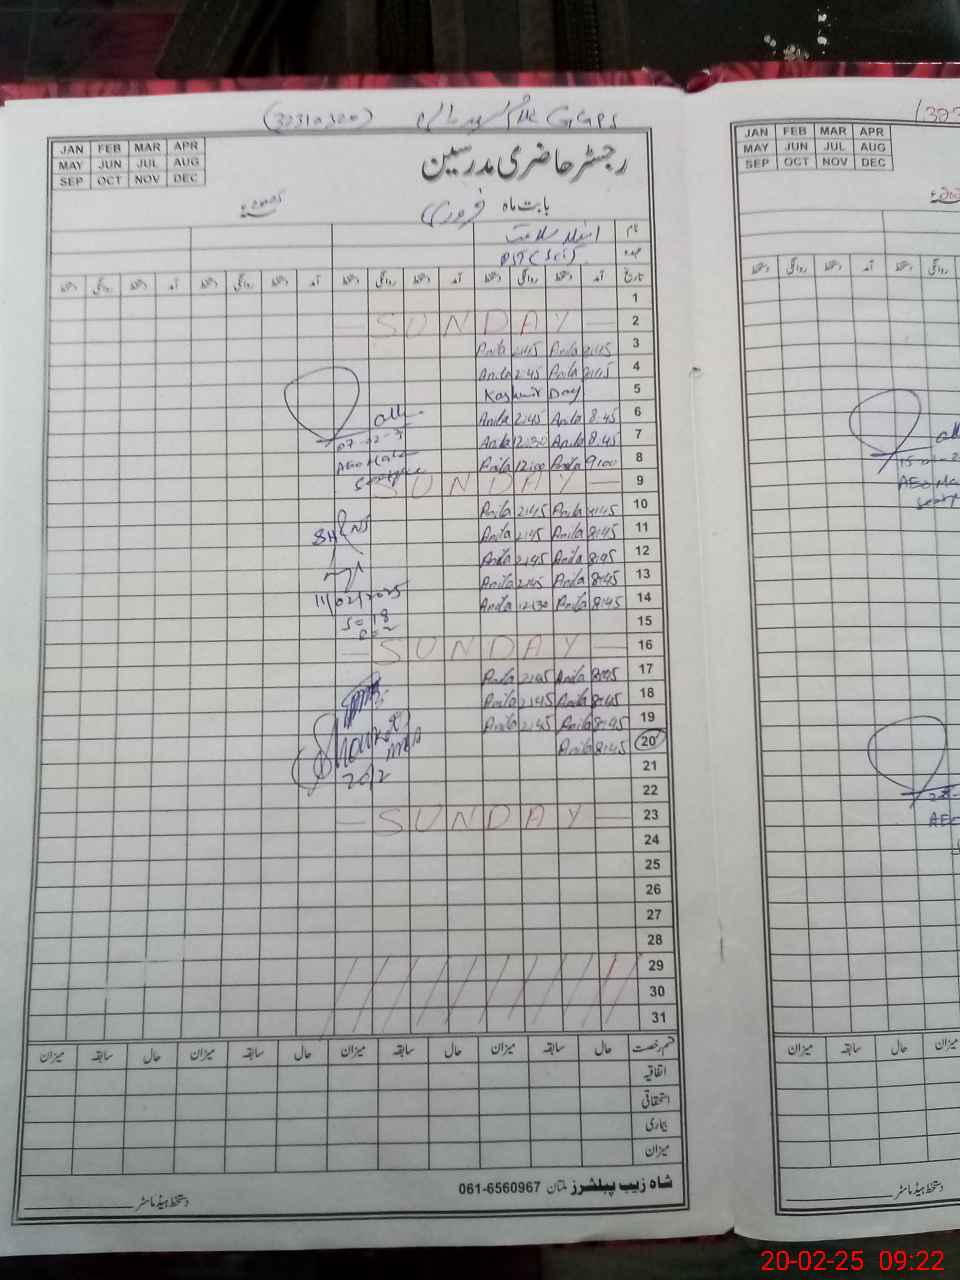 GGPS (32310320)
JAN FEB MAR APR
MAY JUN JUL AUG
SEP OCT NOV DEC
رجسٹر حاضری مدرسین
بابت ماہ فروری 2025ء
نام
عہدہ PST (Sci)
تاریخ آمد دستخط روانگی دستخط آمد دستخط روانگی دستخط آمد دستخط روانگی دستخط آمد دستخط روانگی دستخط
1
2 SUNDAY
3 Anila 2:45 Anila 8:45
4 Anila 2:45 Anila 8:45
5 Kashmir Day
6 Anila 2:45 Anila 8:45
7 Anila 12:30 Anila 8:45
8 Anila 12:00 Anila 9:00
9 SUNDAY
10 Anila 2:45 Anila 8:45
11 Anila 2:45 Anila 8:45
12 Anila 2:45 Anila 8:45
13 Anila 2:45 Anila 8:45
14 Anila 12:30 Anila 8:45
15
16 SUNDAY
17 Anila 2:45 Anila 8:45
18 Anila 2:45 Anila 8:45
19 Anila 2:45 Anila 8:45
20 Anila 8:45
21
22
23 SUNDAY
24
25
26
27
28
29
30
31
AEO
11/02/2025
20/2
قسم رخصت حال سابقہ میزان حال سابقہ میزان حال سابقہ میزان حال سابقہ میزان
اتفاقیہ
استحقاقی
بیماری
میزان
شاہ زیب پبلشرز ملتان 061-6560967
دستخط ہیڈ ماسٹر
JAN FEB MAR APR
MAY JUN JUL AUG
SEP OCT NOV DEC
آمد دستخط روانگی دستخط
AEO
AEO
میزان سابقہ حال میزان
دستخط ہیڈ ماسٹر
20-02-25 09:22